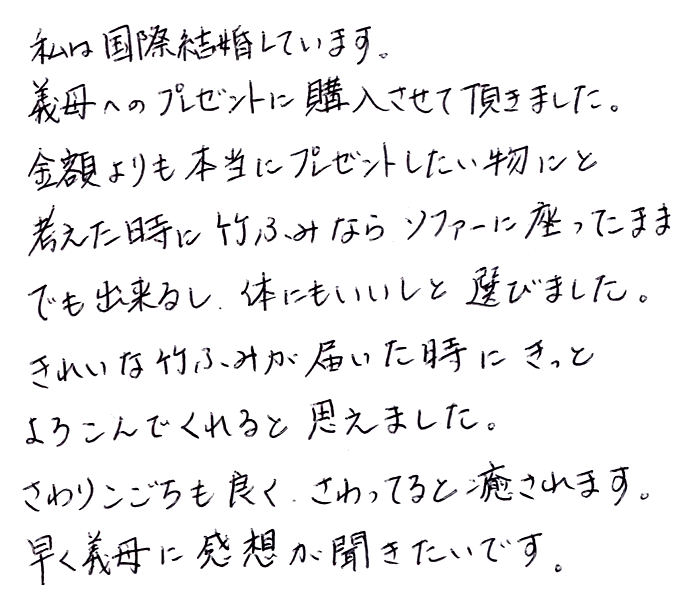 私は国際結婚しています。
義母へのプレゼントに購入させて頂きました。
金額よりも本当にプレゼントしたい物にと
考えた時に竹ふみならソファーに座ったまま
でも出来るし、体にもいいしと選びました。
きれいな竹ふみが届いた時にきっと
よろこんでくれると思えました。
さわりごごちも良く、さわってると癒されます。
早く義母に感想が聞きたいです。